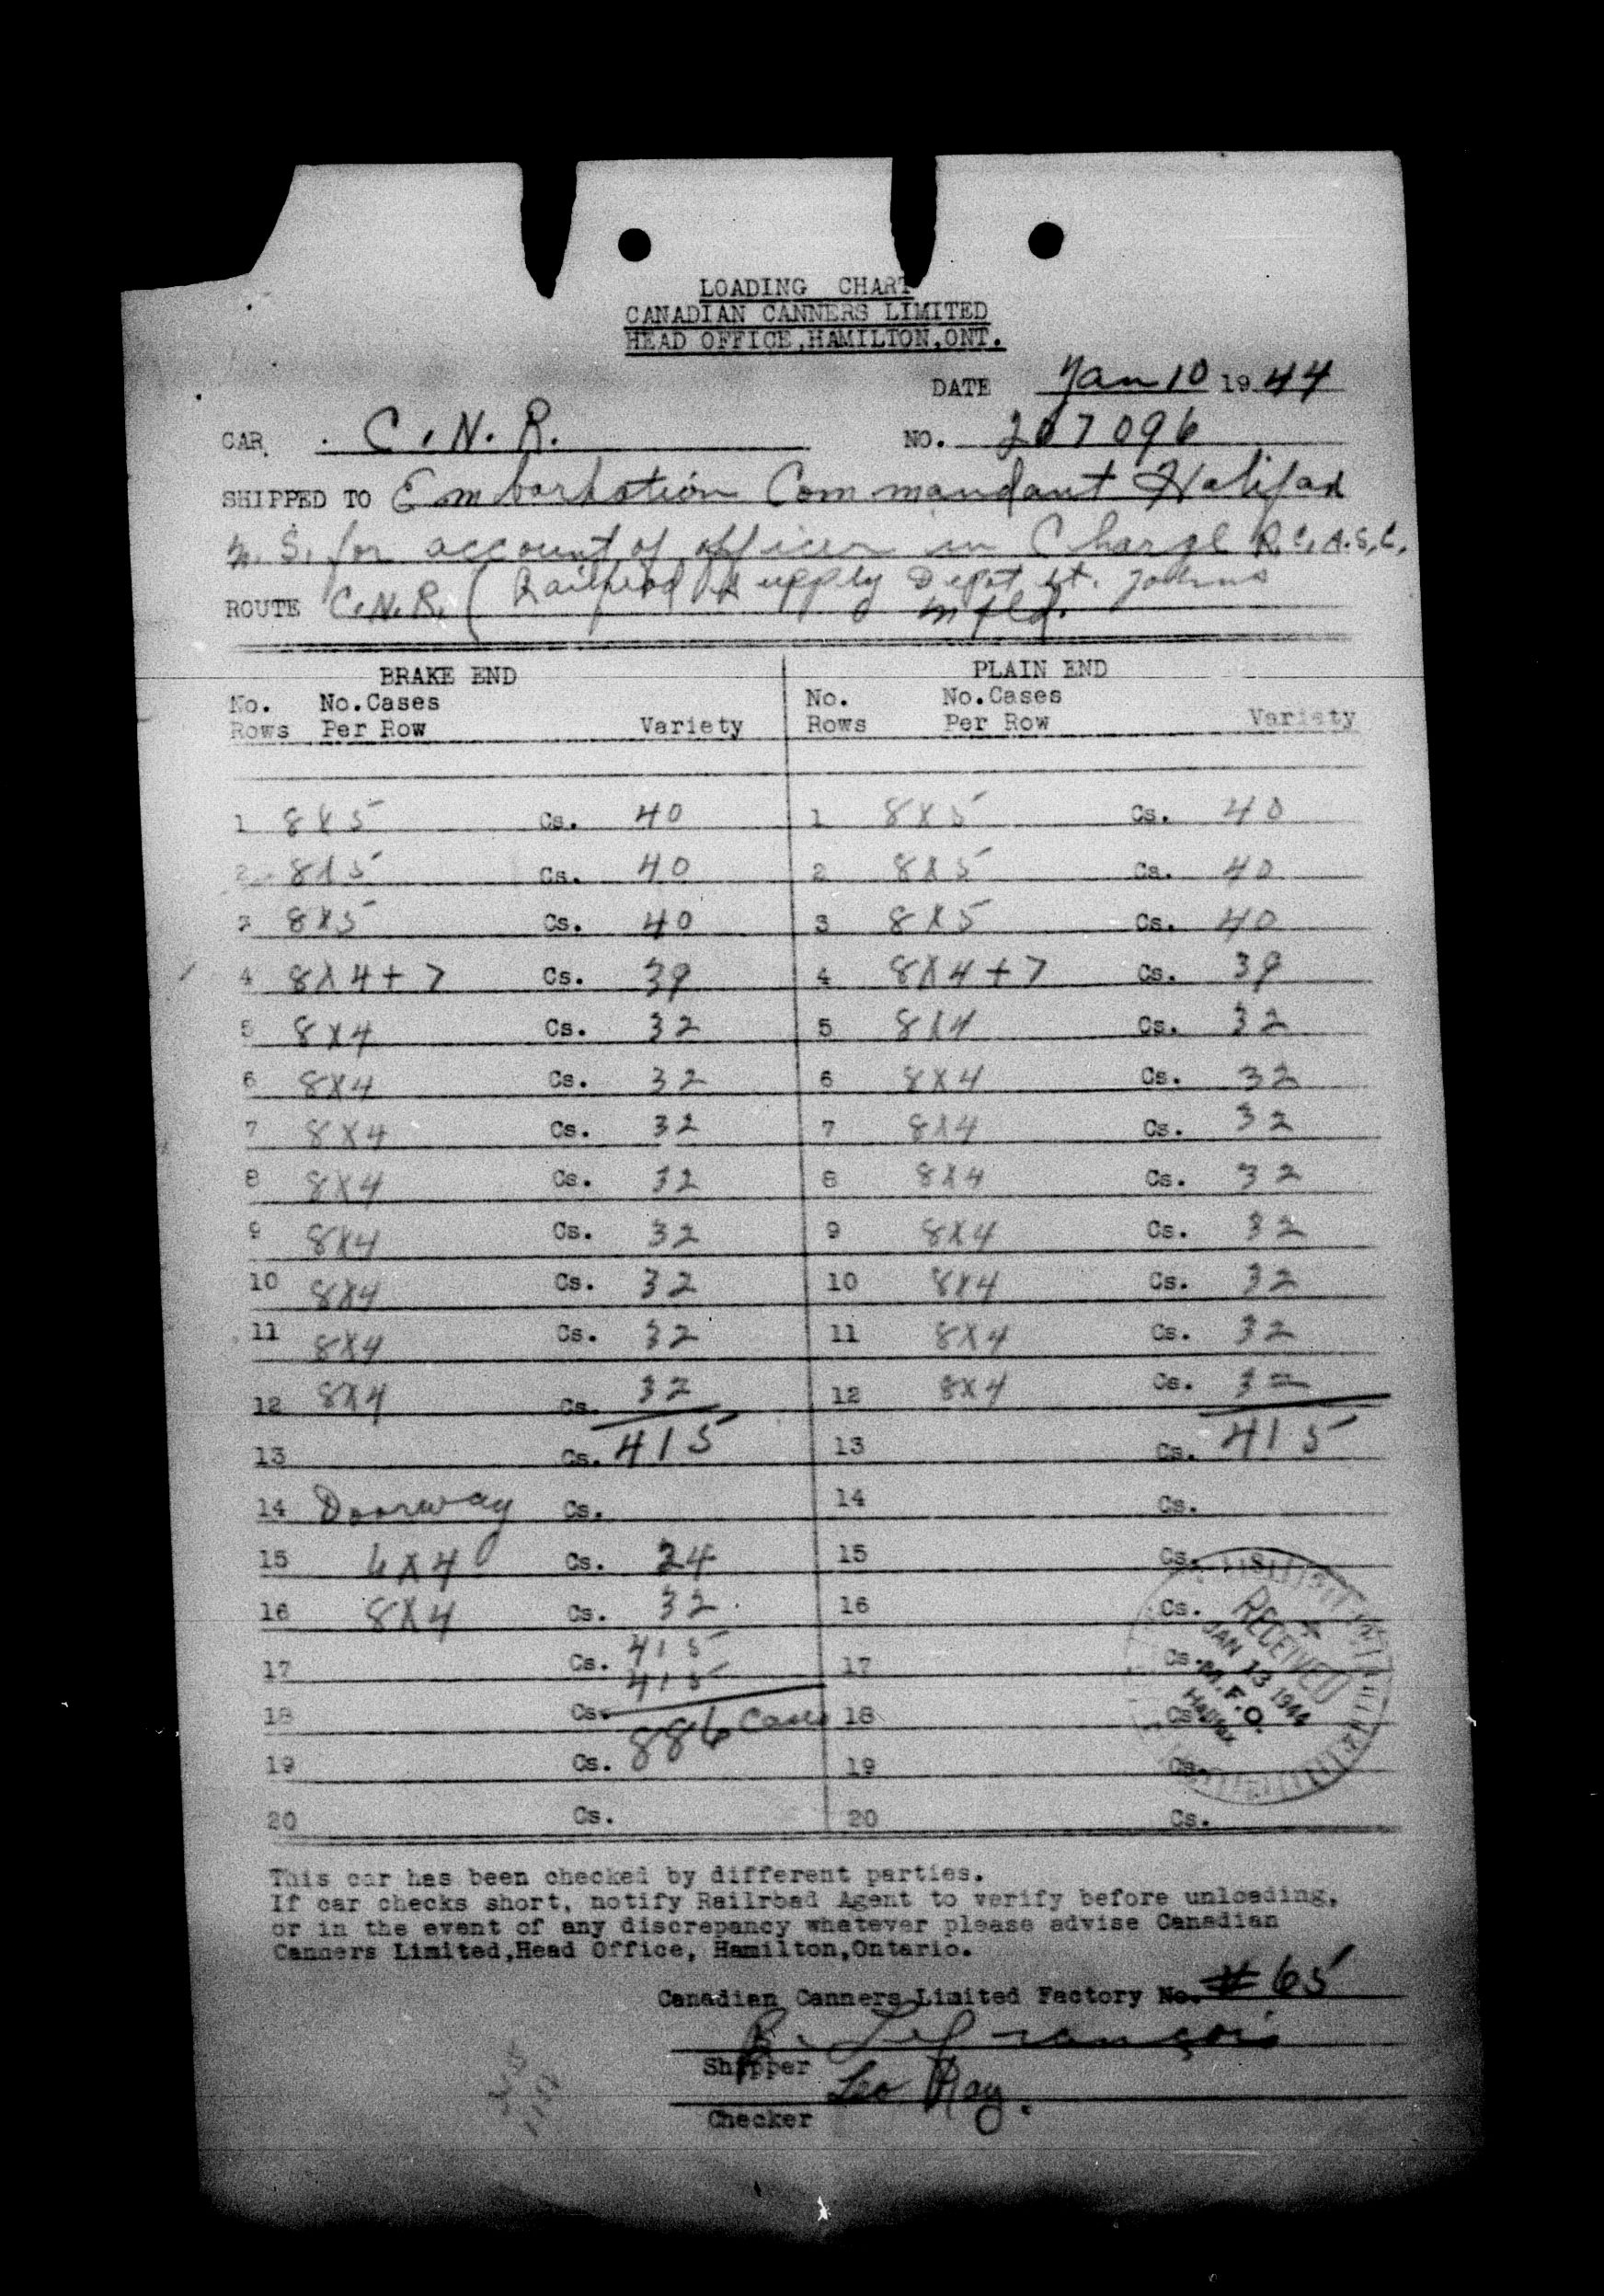 LOADING CHART
CANADIAN CANNERS LIMITED
HEAD OFFICE,HAMILTON,ONT.
DATE Jan 10 1944
CAR. C.N.R. NO. 207096
SHIPPED TO Embarkation Commandant Halifax
N.S. for account of officer in Charge R.C.A.S.C.
Railhead Supply Depot St. Johns
ROUTE C.N.R. ( Nfld.
BRAKE END PLAIN END
No. No.Cases No. No.Cases
Rows Per Row Variety Rows Per Row Variety
1 8X5 Cs. 40 1 8X5 Cs. 40
2 8X5 Cs. 40 2 8X5 Cs. 40
3 8X5 Cs. 40 3 8X5 Cs. 40
4 8X4+7 Cs. 39 4 8X4+7 Cs. 39
5 8X4 Cs. 32 5 8X4 Cs. 32
6 8X4 Cs. 32 6 8X4 Cs. 32
7 8X4 Cs. 32 7 8X4 Cs. 32
8 8X4 Cs. 32 8 8X4 Cs. 32
9 8X4 Cs. 32 9 8X4 Cs. 32
10 8X4 Cs. 32 10 8X4 Cs. 32
11 8X4 Cs. 32 11 8X4 Cs. 32
12 8X4 Cs. 32 12 8X4 Cs. 32
13 Cs. 415 13 Cs. 415
14 Doorway Cs. 14 Cs.
15 6X4 Cs. 24 15 Cs.
16 8X4 Cs. 32 16 Cs.
17 Cs. 415 17 Cs.
415
18 Cs. 18 Cs.
19 Cs. 886 Cases 19 Cs.
20 Cs. 20 Cs.
RECEIVED
JAN 13 1944
M.F.O.
Halifax
This car has been checked by different parties.
If car checks short, notify Railroad Agent to verify before unloading,
or in the event of any discrepancy whatever please advise Canadian
Canners Limited,Head Office, Hamilton,Ontario.
Canadian Canners Limited Factory No. #65
R. Lefrançois
Shipper
Leo Ray.
Checker